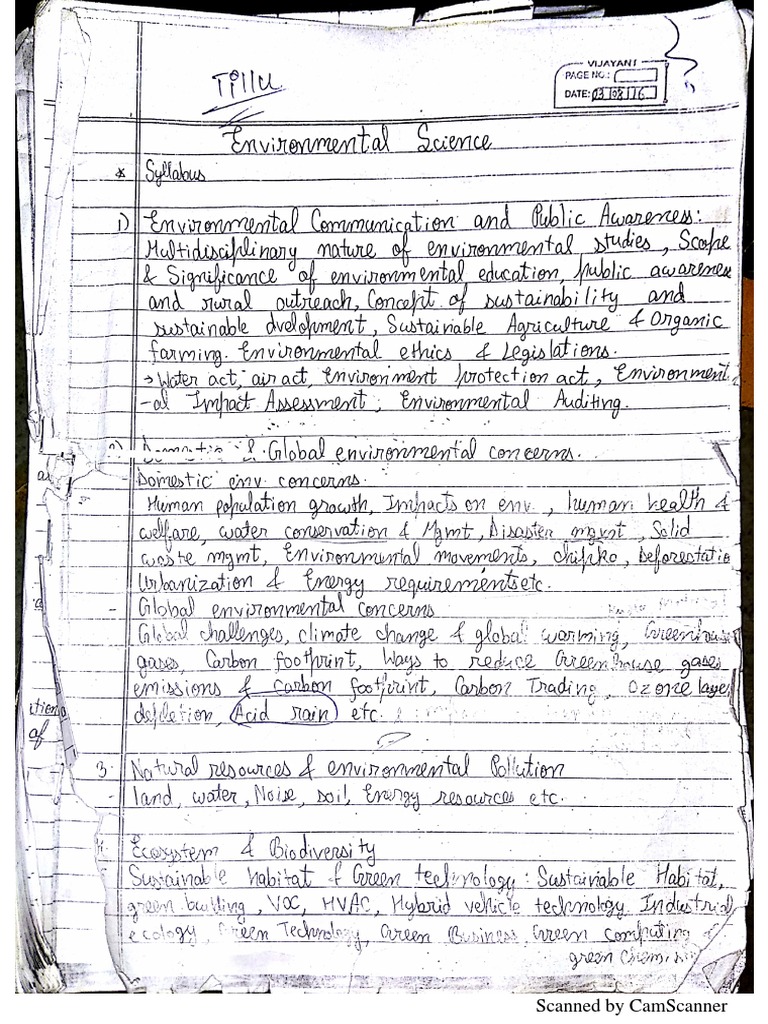 Tillu
VIJAYANT
PAGE NO.:
DATE: 03 08 16
Environmental Science
* Syllabus
1) Environmental Communication and Public Awareness:
Multidisciplinary nature of environmental studies, Scope
& Significance of environmental education, public awareness
and rural outreach, Concept of sustainability and
sustainable dvelopment, Sustainable Agriculture & Organic
farming. Environmental ethics & Legislations.
→ Water act, air act, Environment protection act, Environment
-al Impact Assessment, Environmental Auditing.
2) Domestic & Global environmental concerns.
- Domestic env. concerns.
Human population growth, Impacts on env., human health &
welfare, water conservation & Mgmt, Disaster mgmt, Solid
waste mgmt, Environmental movements, chipko, Deforestatio
Urbanization & Energy requirements etc.
- Global environmental concerns
Global challenges, climate change & global warming, Greenhouse
gases, Carbon footprint, Ways to reduce Greenhouse gases
emissions & carbon footprint, Carbon Trading, Ozone layer
depletion, Acid rain etc.
3. Natural resources & environmental Pollution
- land, water, Noise, soil, Energy resources etc.
4. Ecosystem & Biodiversity
Sustainable habitat & Green technology: Sustainable Habitat,
green building, VOC, HVAC, Hybrid vehicle technology, Industrial
ecology, Green Technology, Green Business, Green computing
green Chemis
itiono
of
Scanned by CamScanner